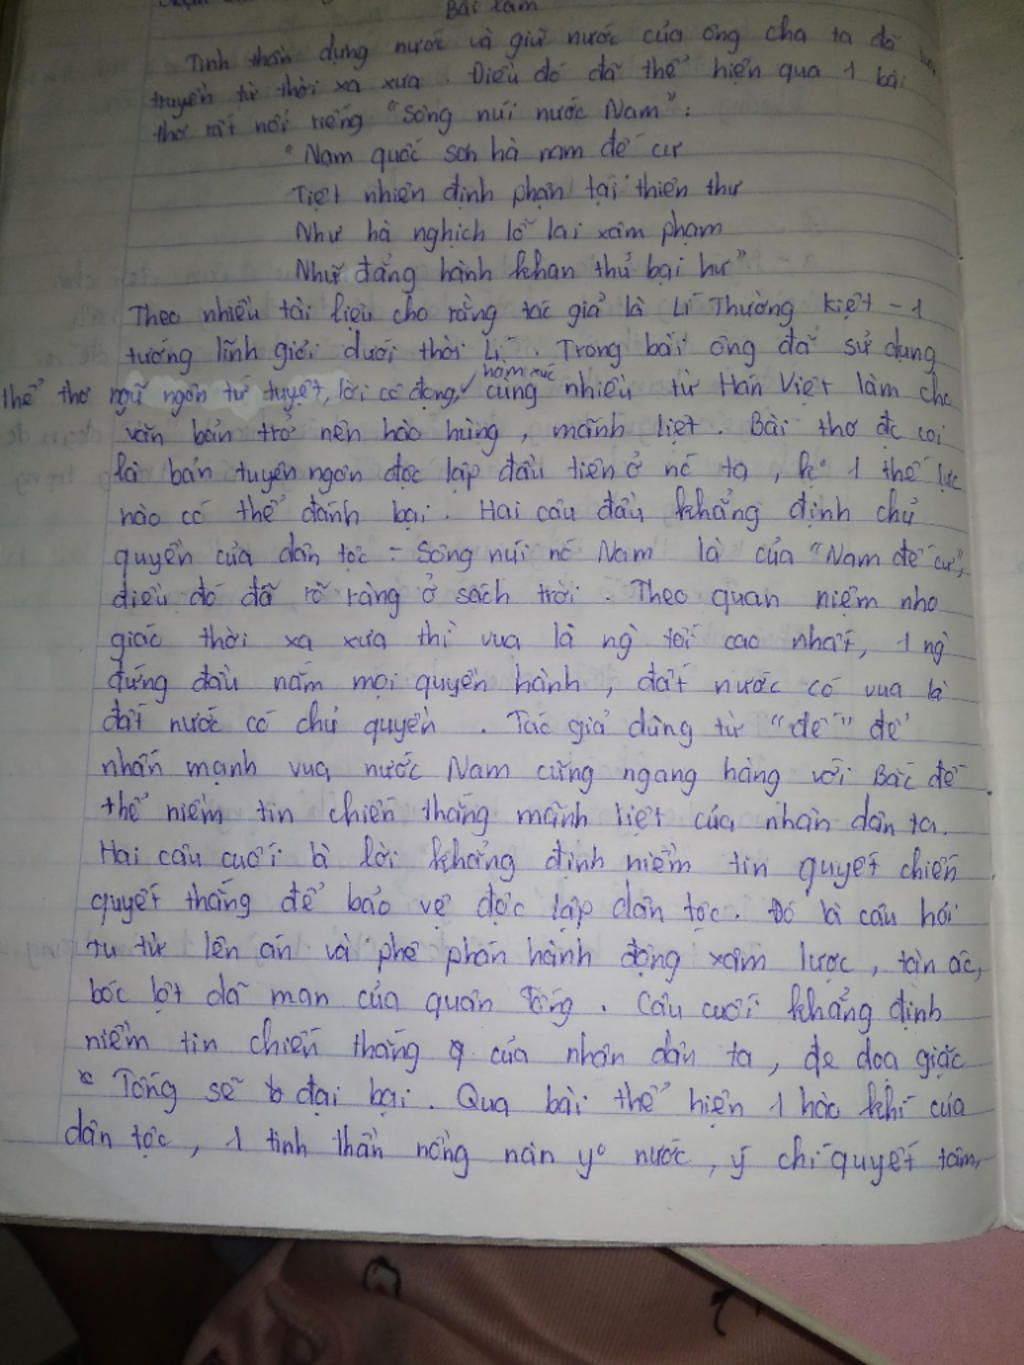 Bài làm
Tinh thần dựng nước và giữ nước của ông cha ta đã
truyền từ thời xa xưa. Điều đó đã thể hiện qua 1 bài
thơ rất nổi tiếng "Sông núi nước Nam":
"Nam quốc sơn hà nam đế cư
Tiệt nhiên định phận tại thiên thư
Như hà nghịch lỗ lai xâm phạm
Nhữ đẳng hành khan thủ bại hư"
Theo nhiều tài liệu cho rằng tác giả là Lí Thường Kiệt - 1
tướng lĩnh giỏi dưới thời Lí. Trong bài ông đã sử dụng
hàm súc
thể thơ ngũ ngôn tứ tuyệt, lời cô đọng, cùng nhiều từ Hán Việt làm cho
văn bản trở nên hào hùng, mãnh liệt. Bài thơ đc coi
là bản tuyên ngôn độc lập đầu tiên ở nc ta, ko 1 thế lực
nào có thể đánh bại. Hai câu đầu khẳng định chủ
quyền của dân tộc: Sông núi nc Nam là của "Nam đế cư",
điều đó đã rõ ràng ở sách trời. Theo quan niệm nho
giáo thời xa xưa thì vua là ng tối cao nhất, 1 ng
đứng đầu nắm mọi quyền hành, đất nước có vua là
đất nước có chủ quyền. Tác giả dùng từ "đế" để
nhấn mạnh vua nước Nam cũng ngang hàng với Bắc đế
thể niềm tin chiến thắng mãnh liệt của nhân dân ta.
Hai câu cuối là lời khẳng định niềm tin quyết chiến
quyết thắng để bảo vệ độc lập dân tộc. Đó là câu hỏi
tu từ lên án và phê phán hành động xâm lược, tàn ác,
bóc lột dã man của quân Tống. Câu cuối khẳng định
niềm tin chiến thắng của nhân dân ta, đe doạ giặc
Tống sẽ đại bại. Qua bài thể hiện 1 hào khí của
dân tộc, 1 tinh thần nồng nàn yo nước, ý chí quyết tâm,